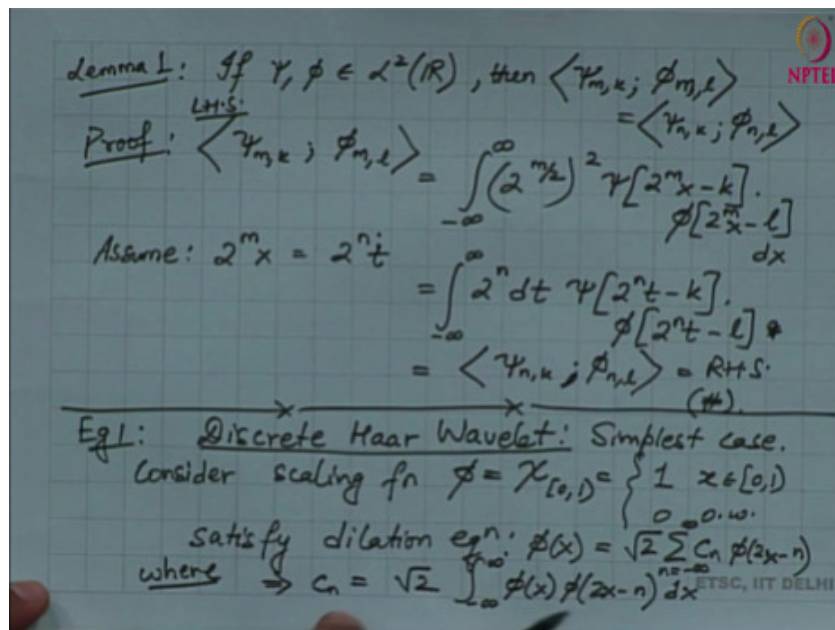 NPTEL
Lemma 1: If Ψ, φ ∈ L²(ℝ), then ⟨Ψm,k ; φm,l⟩
= ⟨Ψn,k ; φn,l⟩
L.H.S.
Proof: ⟨Ψm,k ; φm,l⟩ = ∫_{-∞}^{∞} (2^{m/2})² Ψ[2^m x - k].
φ[2^m x - l]
dx
Assume: 2^m x = 2^n t
= ∫_{-∞}^{∞} 2^n dt Ψ[2^n t - k].
φ[2^n t - l]
= ⟨Ψn,k ; φn,l⟩ = RHS.
(#).
Eg 1: Discrete Haar Wavelet: Simplest case.
Consider scaling fn φ = χ[0,1) = { 1 x ∈ [0,1)
0 o.w.
satisfy dilation eqn: φ(x) = √2 Σ_{n=-∞}^{∞} Cn φ(2x-n)
where ⇒ Cn = √2 ∫_{-∞}^{∞} φ(x) φ(2x-n) dx
ETSC, IIT DELHI